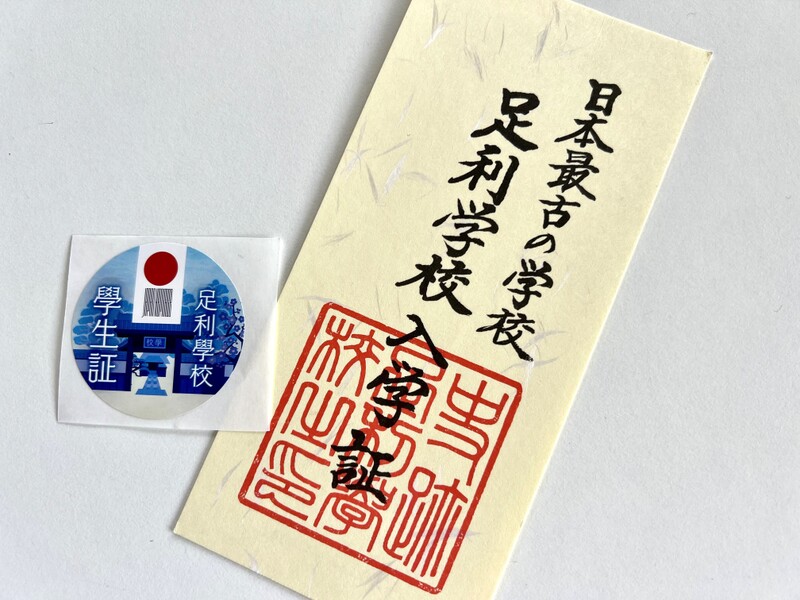 日本最古の学校
足利学校入学証
史跡
足利學
校之印
足利學校
學生証
學校